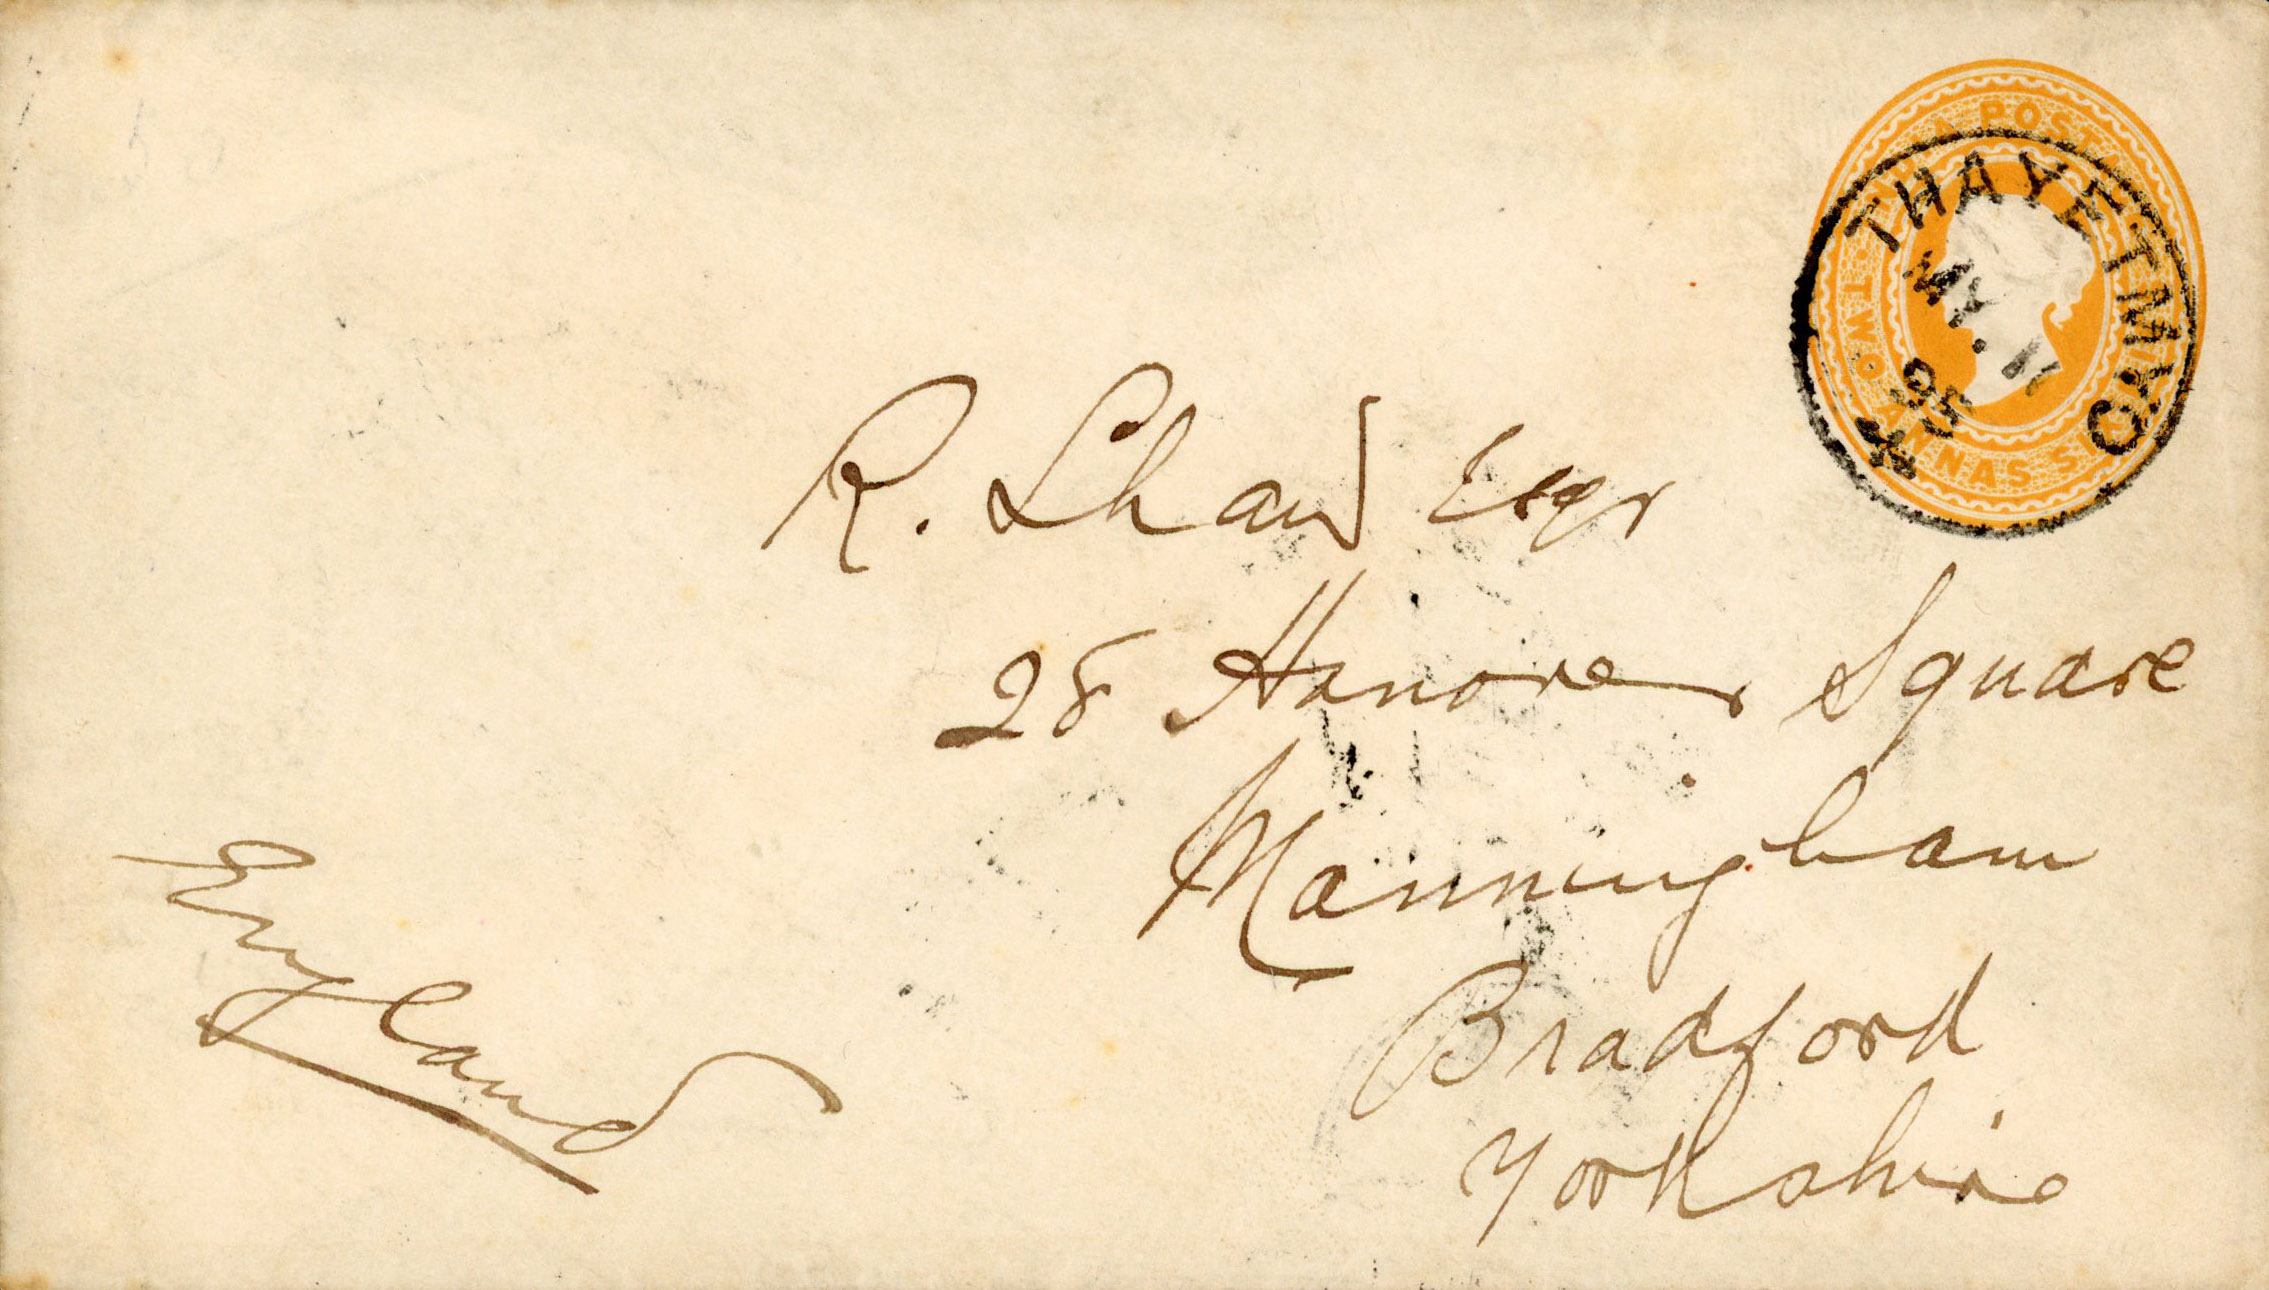 INDIA POSTAGE
TWO ANNAS SIX
THAYETMYO
MY. 11
95
R. Shaw Esqr
28 Hanover Square
Manningham
Bradford
Yorkshire
England